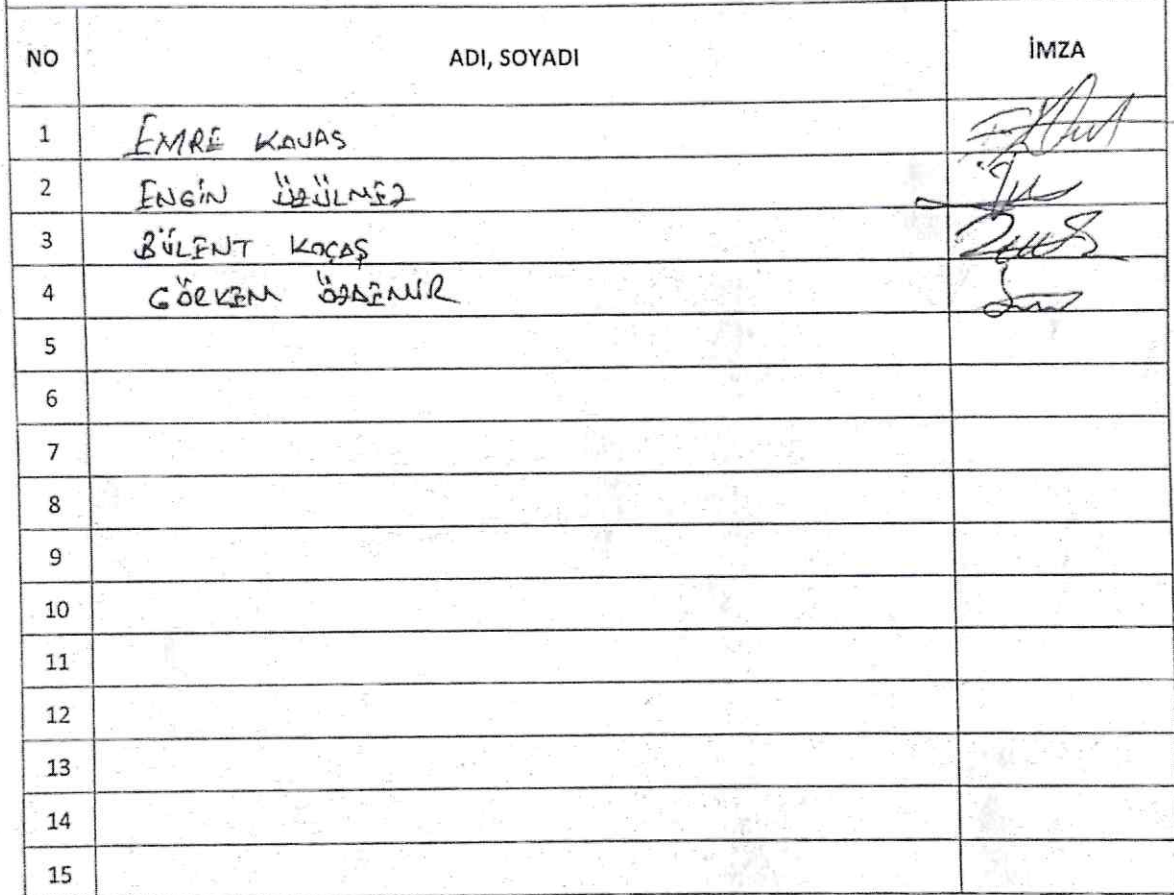 NO ADI, SOYADI İMZA
1 EMRE KAVAS
2 ENGİN ÜZÜLMEZ
3 BÜLENT KOÇAŞ
4 GÖRKEM ÖZDEMİR
5
6
7
8
9
10
11
12
13
14
15